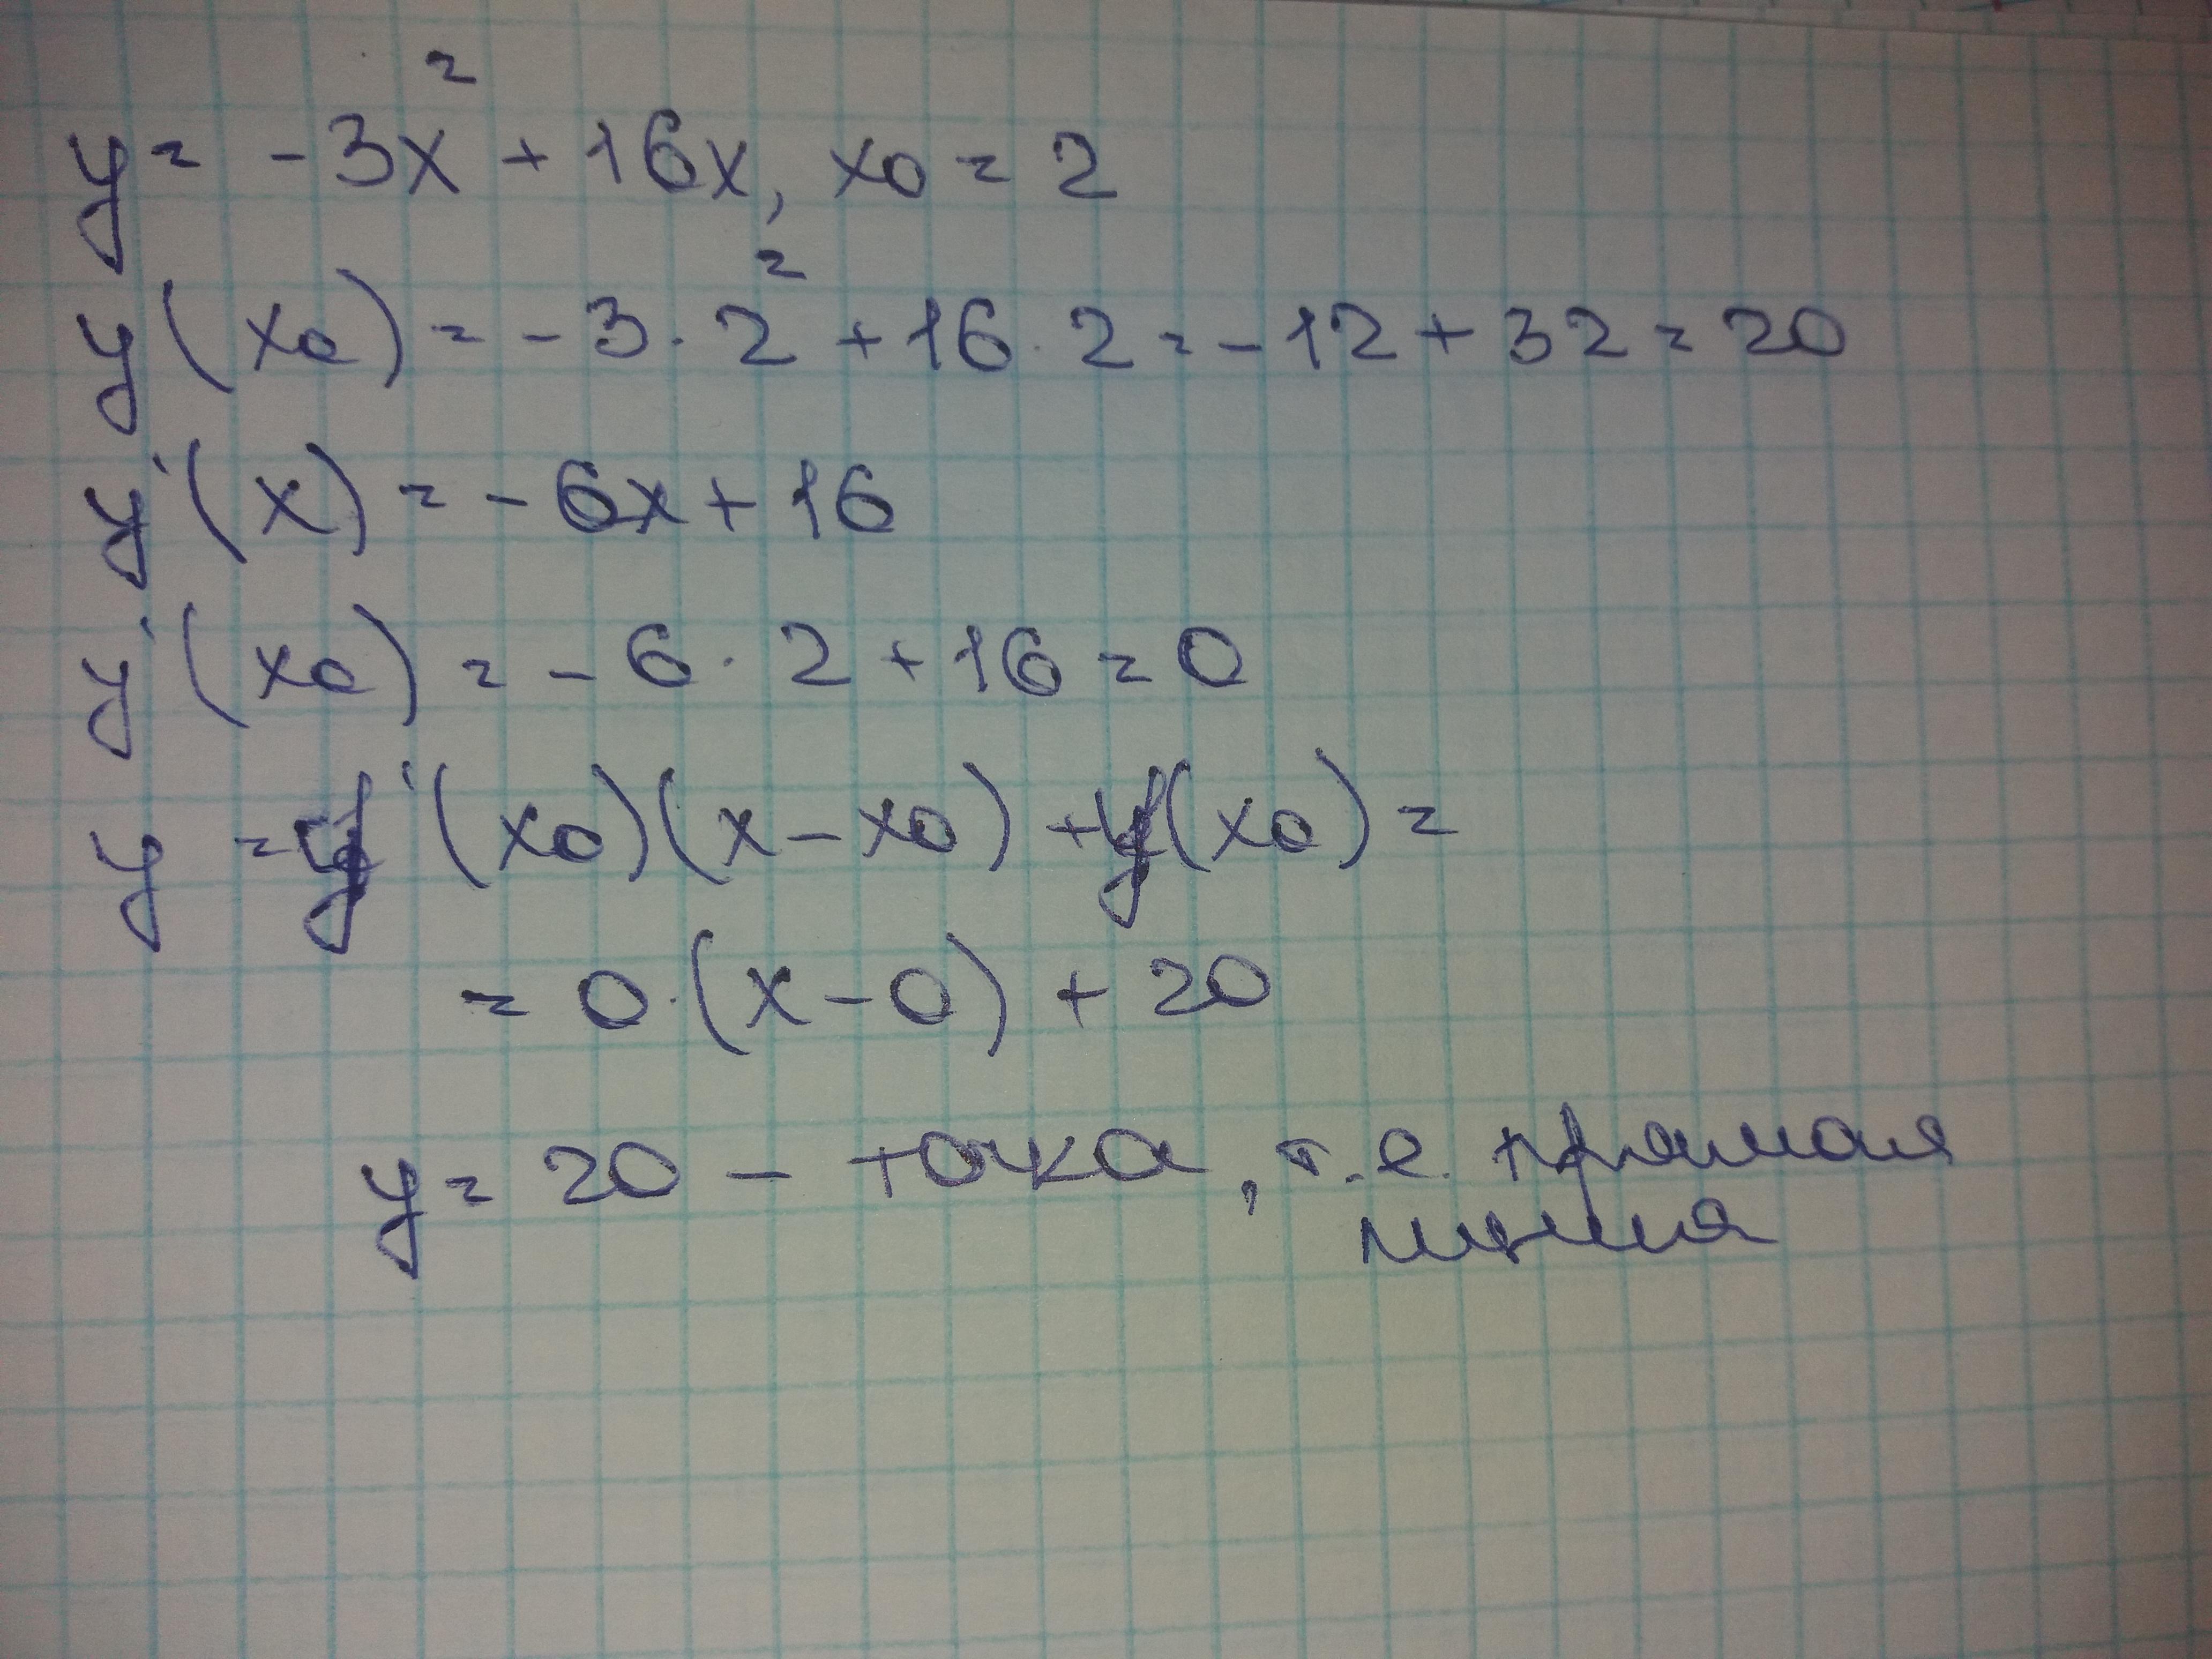 y = -3x² + 16x, x0 = 2
y(x0) = -3·2² + 16·2 = -12 + 32 = 20
y'(x) = -6x + 16
y'(x0) = -6·2 + 16 = 0
y = y'(x0)(x - x0) + y(x0) =
= 0·(x - 0) + 20
y = 20 - точка, т.е. прямая
линия